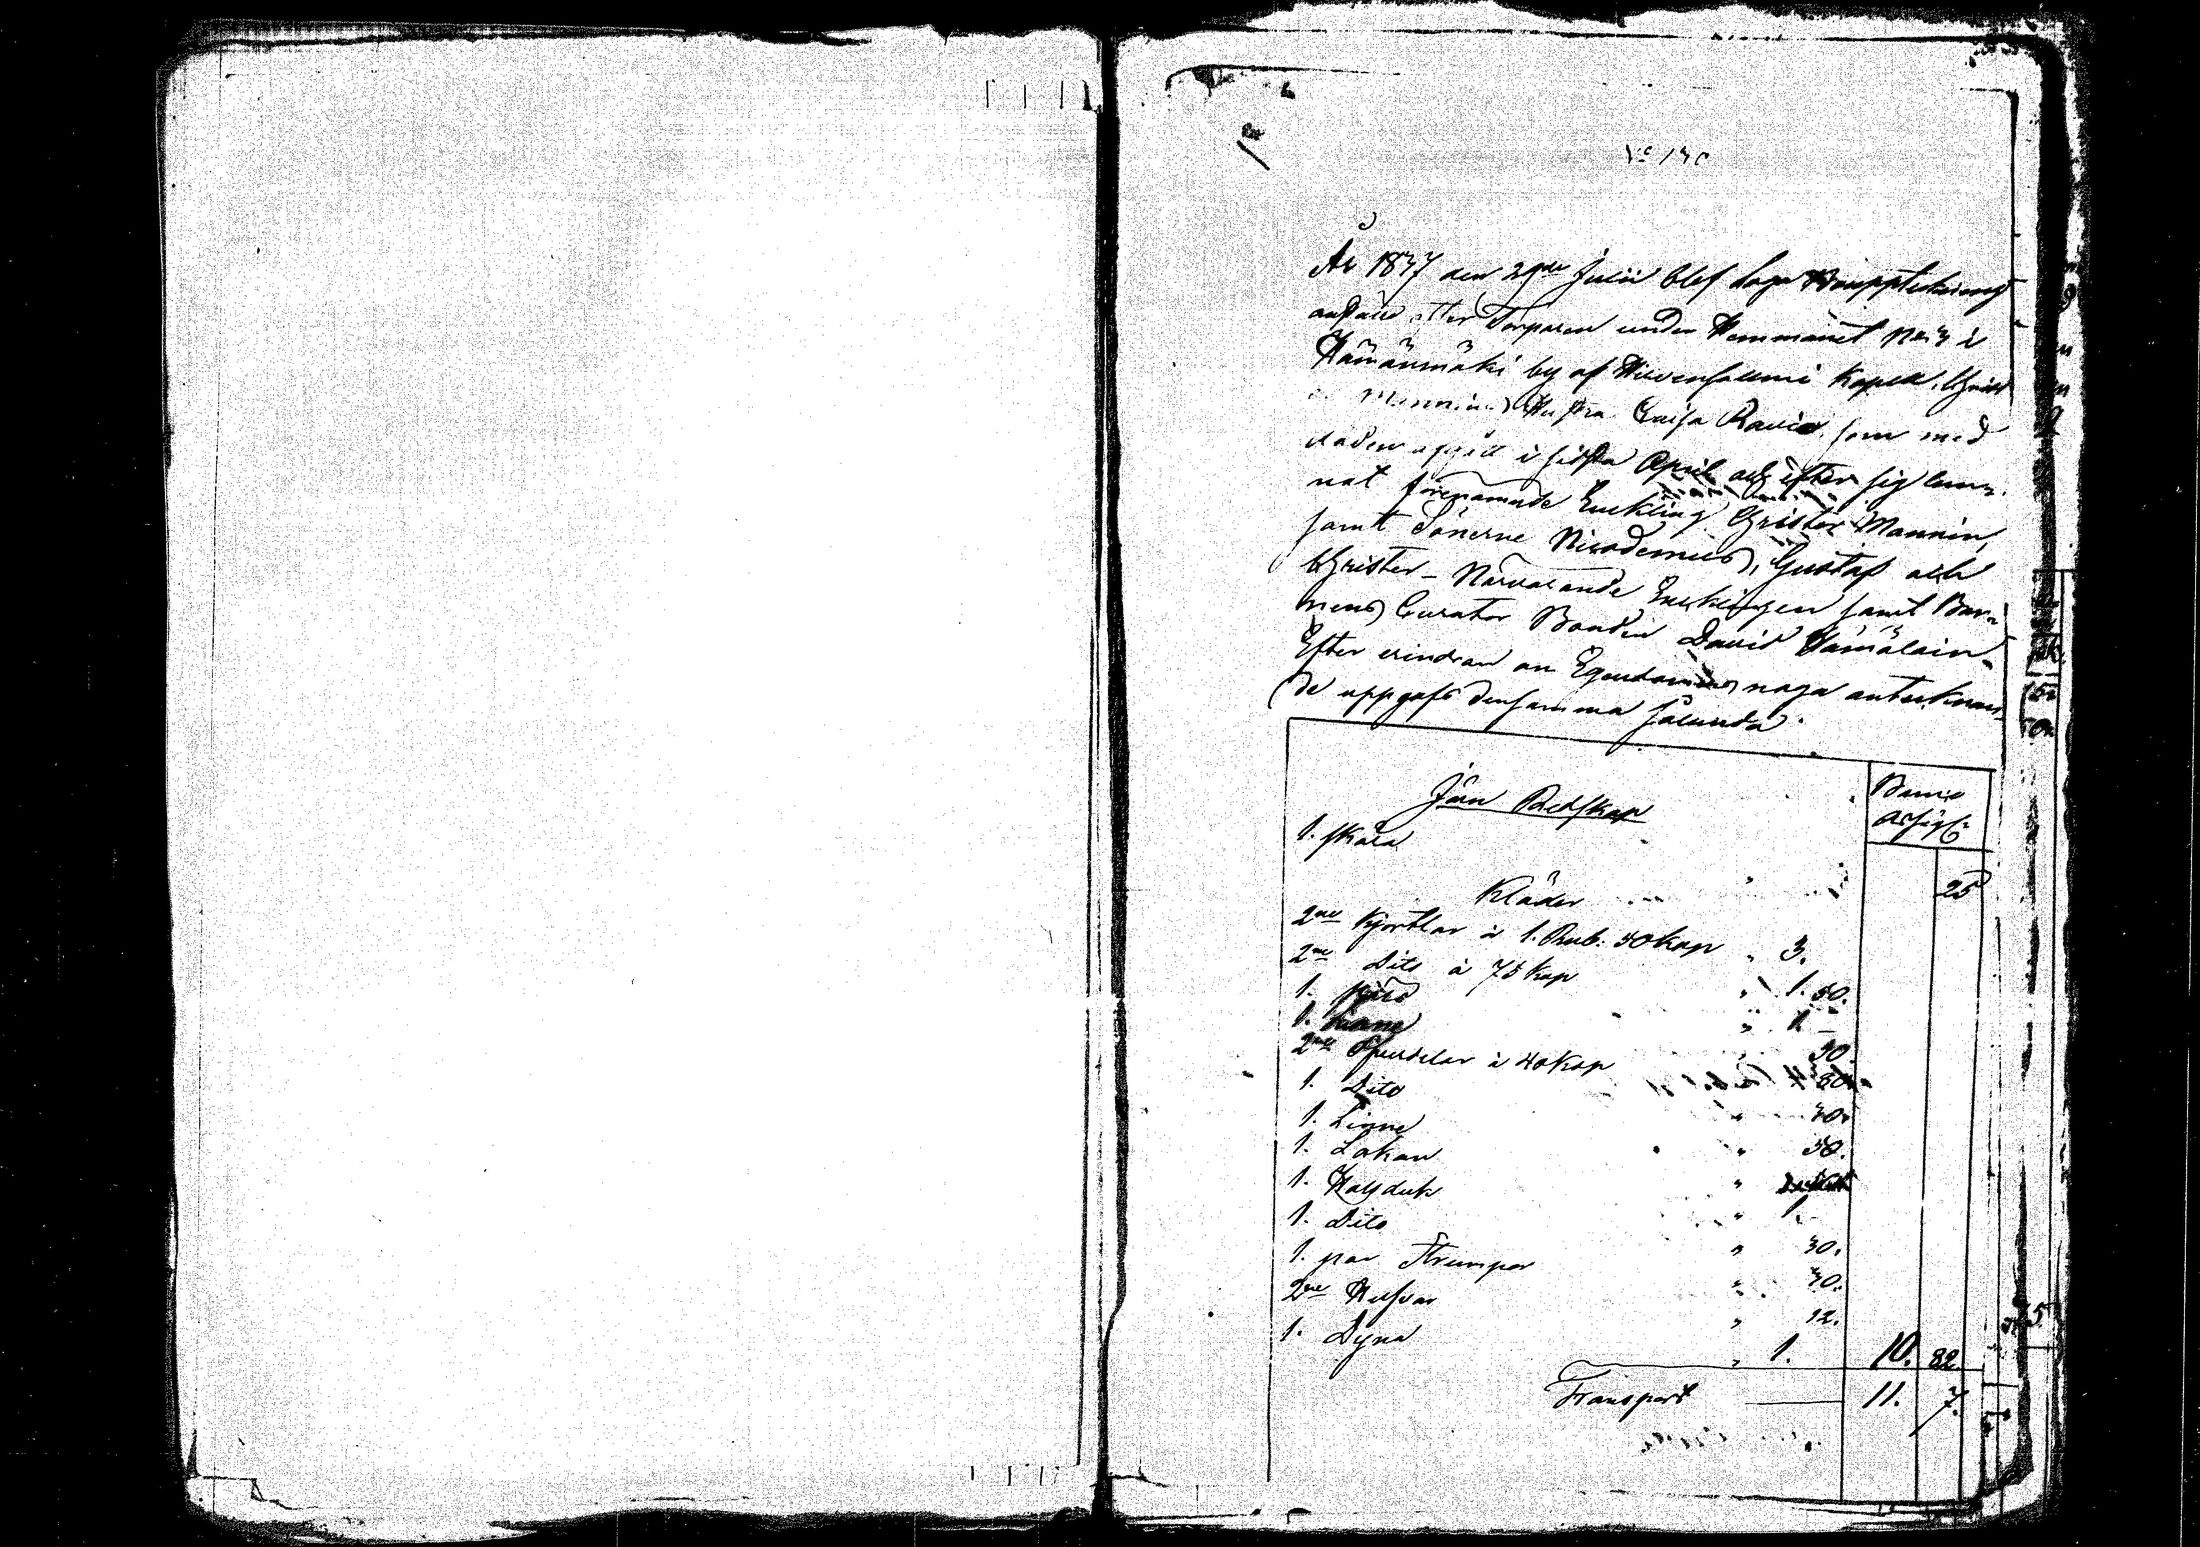 No 130
År 1837 den 29de Julii blef laga Bouppteckning
anstäld efter Torparen under Hemmanet No 3 i
Hämänmäki by af Hirvensalmi Kapell, Christ
Manninens Hustru Caisa Ravia, som med
döden afgått i sidsta April och efter sig lem-
nat förenämnde Enckling Christer Mannin,
samt Sönerne Nicodemus, Gustaf och
Christer - Närvarande Encklingen samt Bar-
nens Curator Bonden David Hämäläin -
Efter erindran om Egendomens noga antecknan-
de uppgafs densamma sålunda.
Järn Redskap
Banco
Assign:
1. skära 25
Kläder
2ne Kjortlar à 1. Rub. 50 kop " 3.
2ne Dito à 75 kop " 1. 50.
1. " 1 -
1. 50.
2ne Öfverdelar à 40 kop 80
1. Dito " 30
1. Linne " 50.
1. Lakan "
1. Halsduk " 1.
1. Dito " 30.
1. par Strumpor " 30.
2ne Hufvor " 12.
1. Dyna " 1. 10. 82
Transport 11. 7.